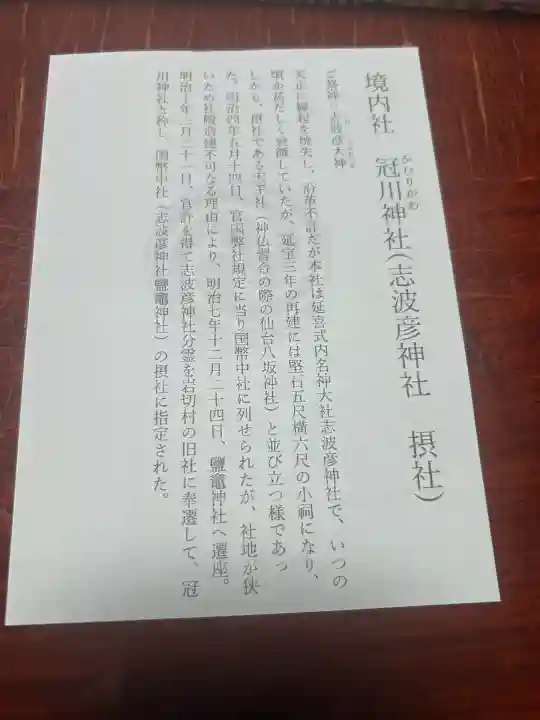 境内社 冠川神社(志波彦神社 摂社)
かむりがわ
ご祭神 志波彦大神
天正に縁起を焼失し、沿革不詳だが本社は延喜式内名神大社志波彦神社で、いつの
頃か甚だしく衰微していたが、延宝三年の再建には竪石五尺横六尺の小祠になり、
しかも、摂社である天王社(神仏習合の際の仙台八坂神社)と並び立つ様であっ
た。明治四年五月十四日、官国弊社規定に当り国幣中社に列せられたが、社地が狭
いため社殿造建不可なる理由により、明治七年十二月二十四日、鹽竈神社へ遷座。
明治 年三月二十一日、官許を得て志波彦神社分霊を岩切村の旧社に奉遷して、冠
川神社と称し、国幣中社(志波彦神社鹽竈神社)の摂社に指定された。